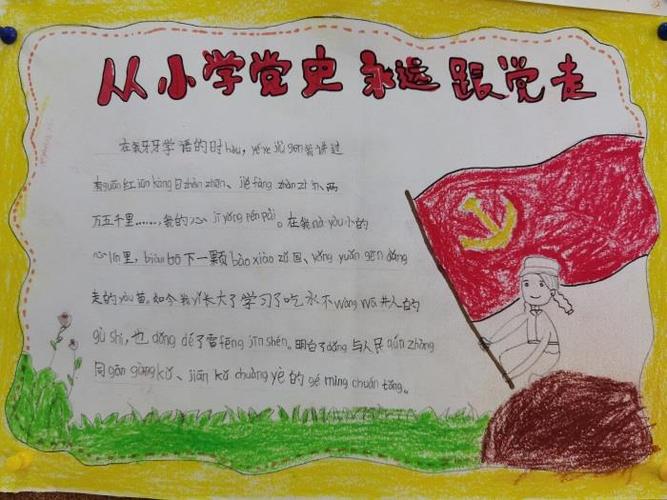 从小学党史 永远跟党走
在我牙牙学语的时hou，yéye 就 gen我讲过
有guān红jūn kàng日zhàn zhēn、jiě fàng zhàn zhēn、两
万五千里……我的心jī yáng pén pài。在我nà yòu小的
心lín里，biàn bō下一颗bào xiào zǔ国、yǒng yuǎn gēn dǎng
走的yòu苗。如今我yǐ长大了学习了吃水不wàng wā井人的
gù shi，也dǒng dé了雷fēng jīn shén。明白了dǎng与人民qún zhòng
同gān gòng kǔ、jiān kǔ chuàng yè的gé mìng chuán tǒng。